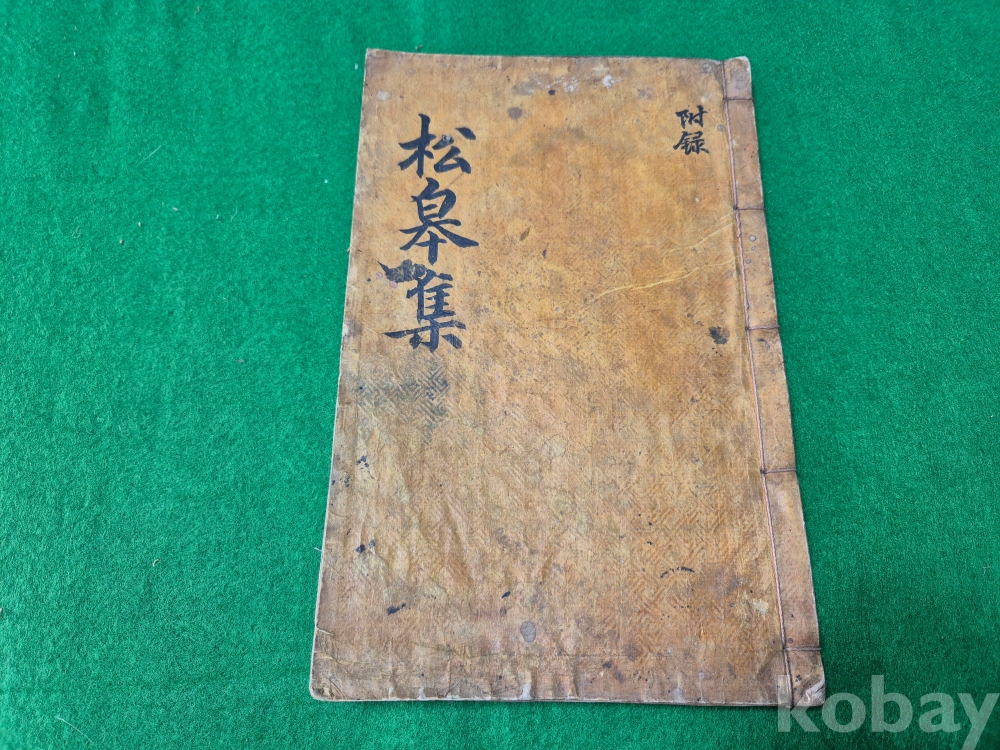 附録
松皐集
kobay